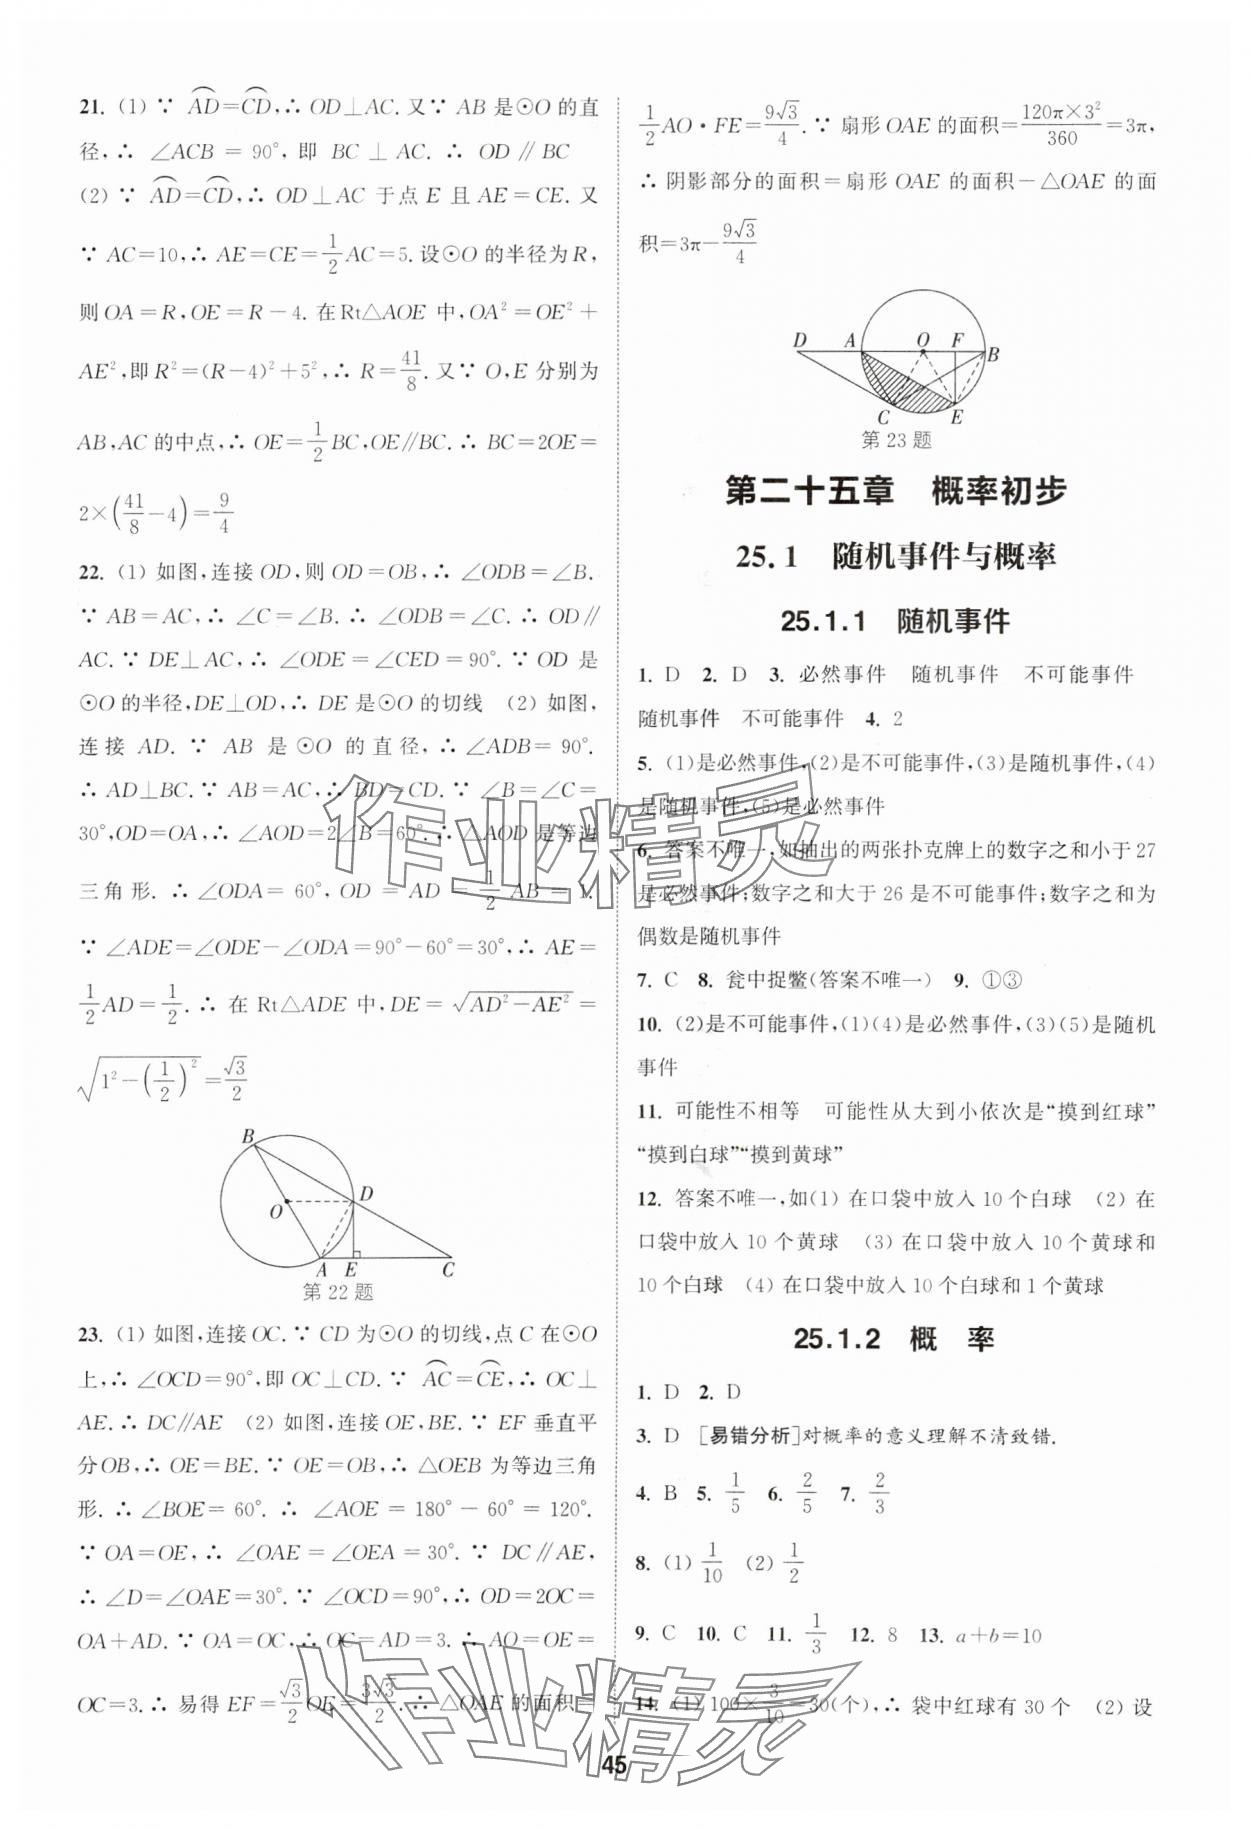 21. (1) ∵ AD=CD,∴ OD⊥AC. 又∵ AB 是⊙O 的直
径,∴ ∠ACB = 90°, 即 BC ⊥ AC. ∴ OD∥BC
(2) ∵ AD=CD,∴ OD⊥AC 于点 E 且 AE=CE. 又
∵ AC=10,∴ AE=CE=1/2AC=5. 设⊙O 的半径为 R,
则 OA=R,OE=R-4. 在 Rt△AOE 中,OA²=OE²+
AE²,即 R²=(R-4)²+5²,∴ R=41/8. 又∵ O,E 分别为
AB,AC 的中点,∴ OE=1/2BC,OE∥BC. ∴ BC=2OE=
2×(41/8-4)=9/4
22. (1) 如图,连接 OD,则 OD=OB,∴ ∠ODB=∠B.
∵ AB=AC,∴ ∠C=∠B. ∴ ∠ODB=∠C. ∴ OD∥
AC. ∵ DE⊥AC,∴ ∠ODE=∠CED=90°. ∵ OD 是
⊙O 的半径,DE⊥OD,∴ DE 是⊙O 的切线 (2) 如图,
连接 AD. ∵ AB 是⊙O 的直径,∴ ∠ADB=90°.
∴ AD⊥BC. ∵ AB=AC,∴ BD=CD. ∵ ∠B=∠C=
30°,OD=OA,∴ ∠AOD=2∠B=60°. ∴ △AOD 是等边
三角形. ∴ ∠ODA=60°,OD=AD=1/2AB=1.
∵ ∠ADE=∠ODE-∠ODA=90°-60°=30°,∴ AE=
1/2AD=1/2. ∴ 在 Rt△ADE 中,DE=√(AD²-AE²)=
√(1²-(1/2)²)=√3/2
B
D
O
A E C
第 22 题
23. (1) 如图,连接 OC. ∵ CD 为⊙O 的切线,点 C 在⊙O
上,∴ ∠OCD=90°,即 OC⊥CD. ∵ AC=CE,∴ OC⊥
AE. ∴ DC∥AE (2) 如图,连接 OE,BE. ∵ EF 垂直平
分 OB,∴ OE=BE. ∵ OE=OB,∴ △OEB 为等边三角
形. ∴ ∠BOE=60°. ∴ ∠AOE=180°-60°=120°.
∵ OA=OE,∴ ∠OAE=∠OEA=30°. ∵ DC∥AE,
∴ ∠D=∠OAE=30°. ∵ ∠OCD=90°,∴ OD=2OC=
OA+AD. ∵ OA=OC,∴ OC=AD=3. ∴ AO=OE=
OC=3. ∴ 易得 EF=√3/2OE=3√3/2. ∴ △OAE 的面积=
1/2AO·FE=9√3/4. ∵ 扇形 OAE 的面积=120π×3²/360=3π,
∴ 阴影部分的面积=扇形 OAE 的面积-△OAE 的面
积=3π-9√3/4
D A O F B
C E
第 23 题
第二十五章 概率初步
25.1 随机事件与概率
25.1.1 随机事件
1. D 2. D 3. 必然事件 随机事件 不可能事件
随机事件 不可能事件 4. 2
5. (1)是必然事件,(2)是不可能事件,(3)是随机事件,(4)
是随机事件,(5)是必然事件
6. 答案不唯一,如抽出的两张扑克牌上的数字之和小于 27
是必然事件;数字之和大于 26 是不可能事件;数字之和为
偶数是随机事件
7. C 8. 瓮中捉鳖(答案不唯一) 9. ①③
10. (2)是不可能事件,(1)(4)是必然事件,(3)(5)是随机
事件
11. 可能性不相等 可能性从大到小依次是“摸到红球”
“摸到白球”“摸到黄球”
12. 答案不唯一,如(1) 在口袋中放入 10 个白球 (2) 在
口袋中放入 10 个黄球 (3) 在口袋中放入 10 个黄球和
10 个白球 (4) 在口袋中放入 10 个白球和 1 个黄球
25.1.2 概 率
1. D 2. D
3. D [易错分析]对概率的意义理解不清致错.
4. B 5. 1/5 6. 2/5 7. 2/3
8. (1) 1/10 (2) 1/2
9. C 10. C 11. 1/3 12. 8 13. a+b=10
14. (1) 100×3/10=30(个),∴ 袋中红球有 30 个 (2) 设
45
作业精灵
作业精灵